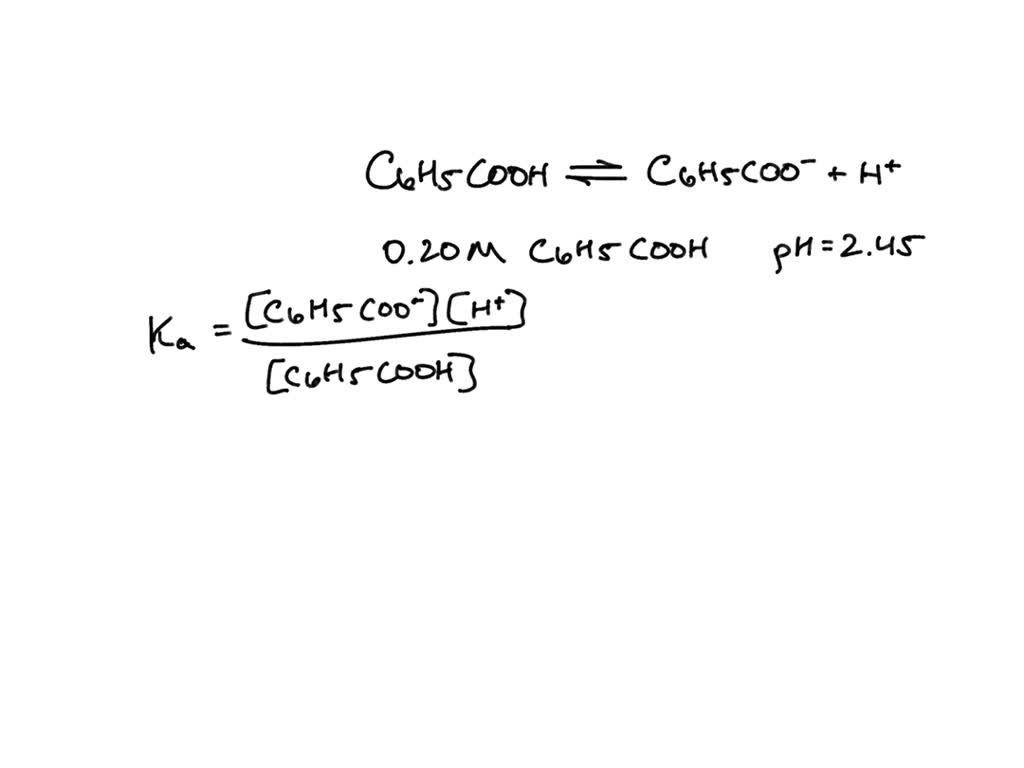 C6H5COOH ⇌ C6H5COO⁻ + H⁺
0.20M C6H5COOH pH = 2.45
Ka = [C6H5COO⁻][H⁺]
[C6H5COOH]